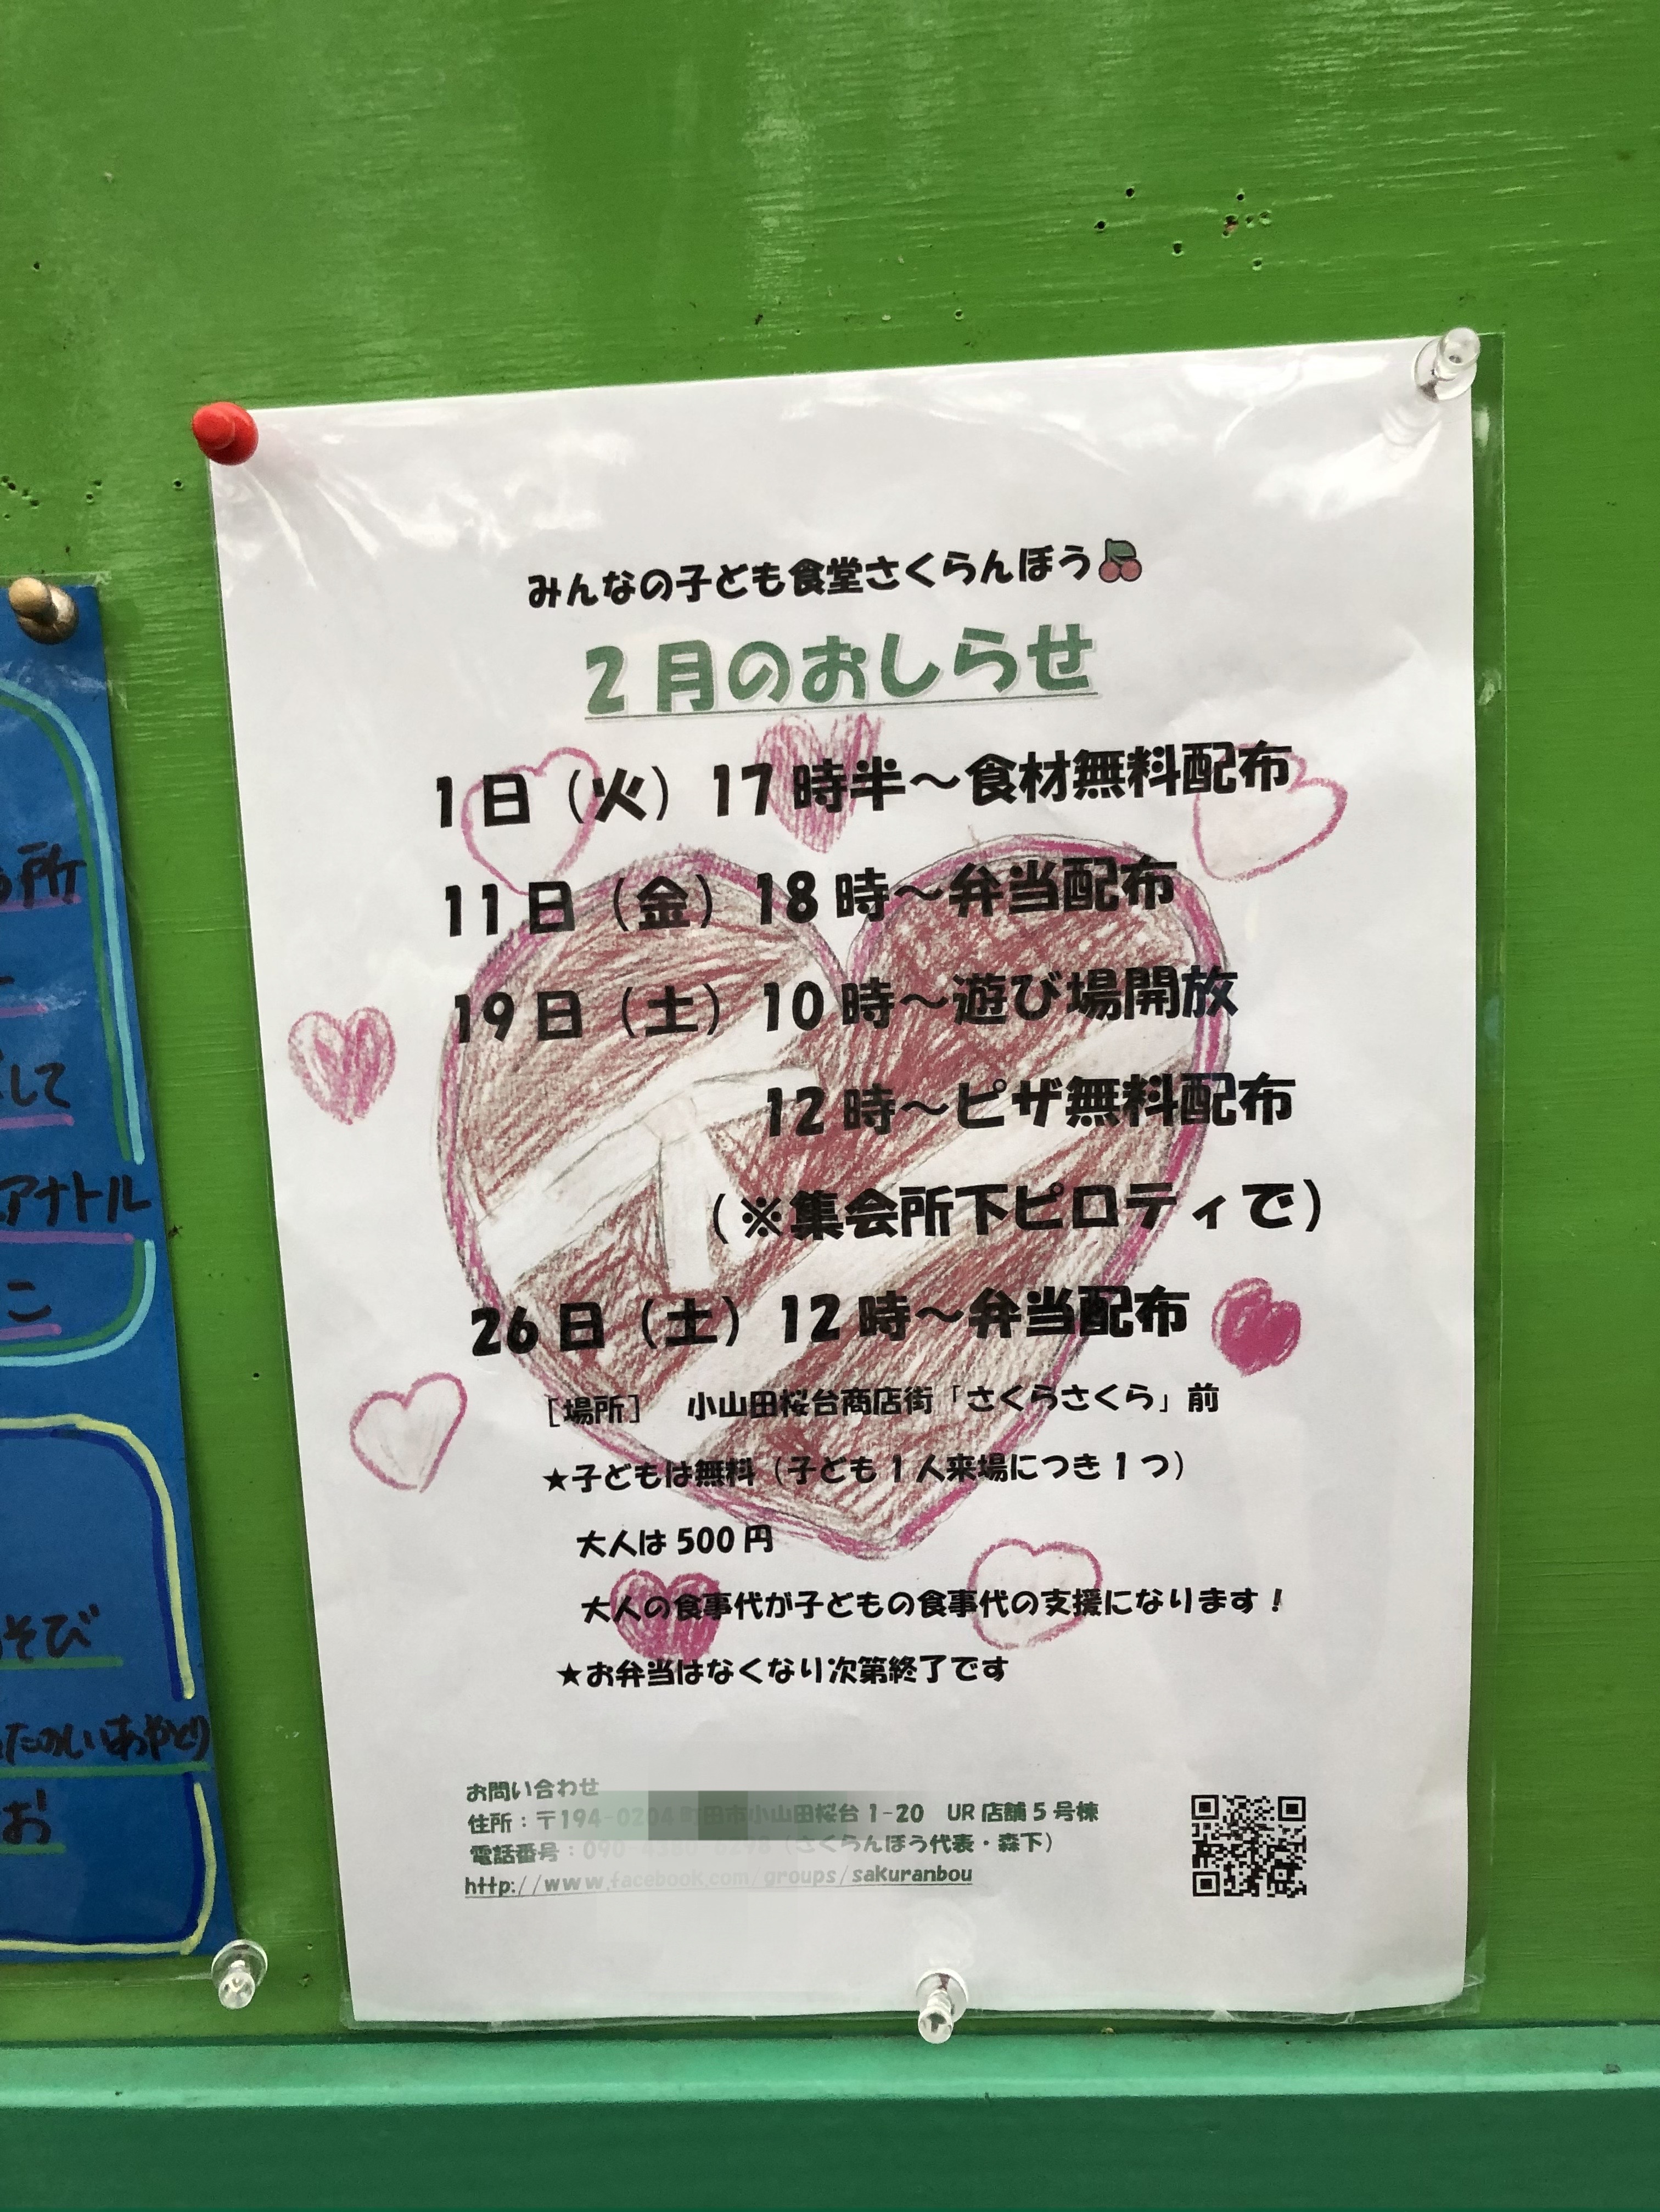 みんなの子ども食堂さくらんぼう
2月のおしらせ
1日（火）17時半～食材無料配布
11日（金）18時～弁当配布
19日（土）10時～遊び場開放
12時～ピザ無料配布
（※集会所下ピロティで）
26日（土）12時～弁当配布
［場所］　小山田桜台商店街「さくらさくら」前
★子どもは無料（子ども1人来場につき1つ）
大人は500円
大人の食事代が子どもの食事代の支援になります！
★お弁当はなくなり次第終了です
お問い合わせ
住所：〒194-0204 町田市小山田桜台1-20　UR店舗5号棟
電話番号：090（さくらんぼう代表・森下）
http://www.facebook.com/groups/sakuranbou
所
して
アナトル
こ
そび
たのしいあやとり
お